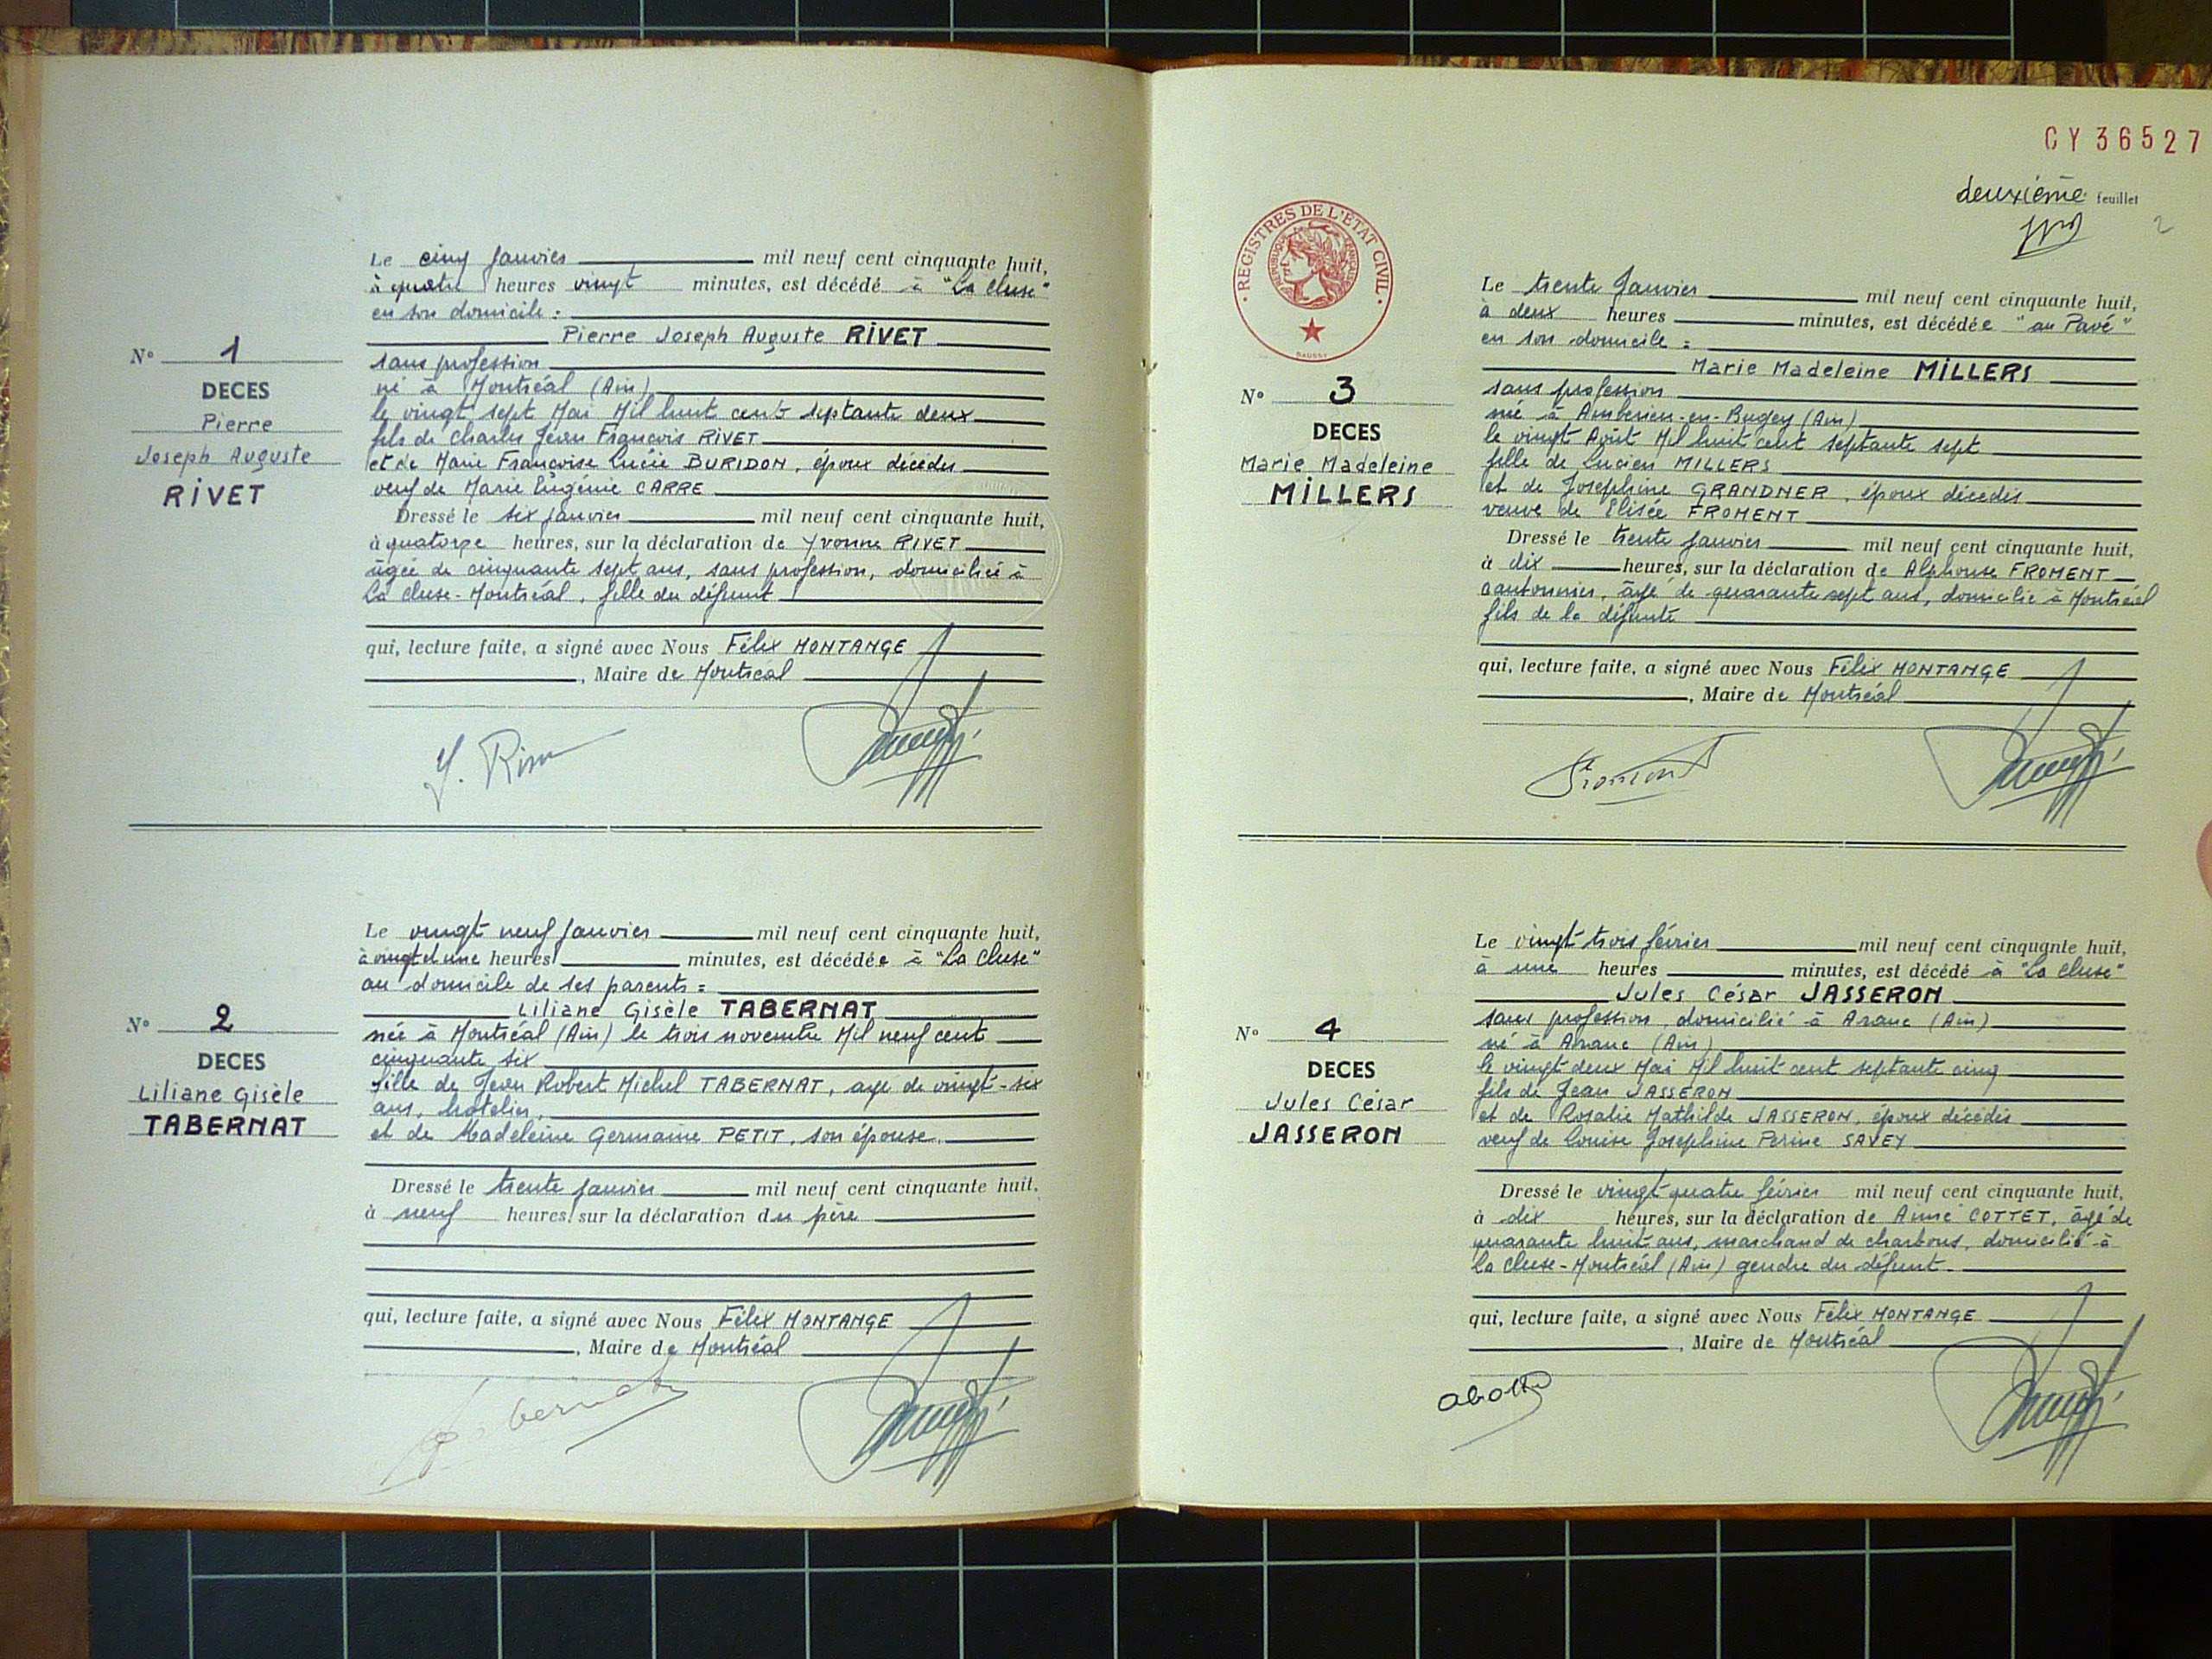 Le cinq Janvier mil neuf cent cinquante huit,
à quatre heures vingt minutes, est décédé à "La Cluse"
en son domicile :
Pierre Joseph Auguste RIVET
sans profession
né à Montréal (Ain)
le vingt sept Mai Mil huit cent septante deux
fils de Charles Jean François RIVET
et de Marie Françoise Lucie BURIDON, époux décédés
veuf de Marie Eugénie CARRE
Dressé le six janvier mil neuf cent cinquante huit,
à quatorze heures, sur la déclaration de Yvonne RIVET
âgée de cinquante sept ans, sans profession, domiciliée à
La Cluse-Montréal, fille du défunt
qui, lecture faite, a signé avec Nous Félix MONTANGE
, Maire de Montréal
N° 1
DECES
Pierre
Joseph Auguste
RIVET
Le vingt neuf Janvier mil neuf cent cinquante huit,
à vingt et une heures minutes, est décédée à "La Cluse"
au domicile de ses parents :
Liliane Gisèle TABERNAT
née à Montréal (Ain) le trois novembre Mil neuf cent
cinquante six
fille de Jean Robert Michel TABERNAT, agé de vingt-six
ans, hôtelier,
et de Madeleine Germaine PETIT, son épouse.
Dressé le trente janvier mil neuf cent cinquante huit,
à neuf heures, sur la déclaration du père
qui, lecture faite, a signé avec Nous Félix MONTANGE
, Maire de Montréal
N° 2
DECES
Liliane Gisèle
TABERNAT
CY 36527
deuxième feuillet
2
REGISTRES DE L'ETAT CIVIL
REPUBLIQUE FRANÇAISE
Le trente Janvier mil neuf cent cinquante huit,
à deux heures minutes, est décédée "au Pavé"
en son domicile :
Marie Madeleine MILLERS
sans profession
née à Ambérieu-en-Bugey (Ain)
le vingt Août Mil huit cent septante sept
fille de Lucien MILLERS
et de Joséphine GRANDNER, époux décédés
veuve de Elisée FROMENT
Dressé le trente janvier mil neuf cent cinquante huit,
à dix heures, sur la déclaration de Alphonse FROMENT
cantonnier, âgé de quarante sept ans, domicilié à Montréal
fils de la défunte
qui, lecture faite, a signé avec Nous Félix MONTANGE
, Maire de Montréal
Froment
N° 3
DECES
Marie Madeleine
MILLERS
Le vingt trois février mil neuf cent cinquante huit,
à une heures minutes, est décédé à "La Cluse"
Jules César JASSERON
sans profession, domicilié à Aranc (Ain)
né à Aranc (Ain)
le vingt deux Mai Mil huit cent septante cinq
fils de Jean JASSERON
et de Rosalie Mathilde JASSERON, époux décédés
veuf de Louise Joséphine Perine SAVEY
Dressé le vingt quatre février mil neuf cent cinquante huit,
à dix heures, sur la déclaration de Aimé COTTET, âgé de
quarante huit ans, marchand de charbons, domicilié à
La Cluse-Montréal (Ain) gendre du défunt.
qui, lecture faite, a signé avec Nous Félix MONTANGE
, Maire de Montréal
N° 4
DECES
Jules César
JASSERON